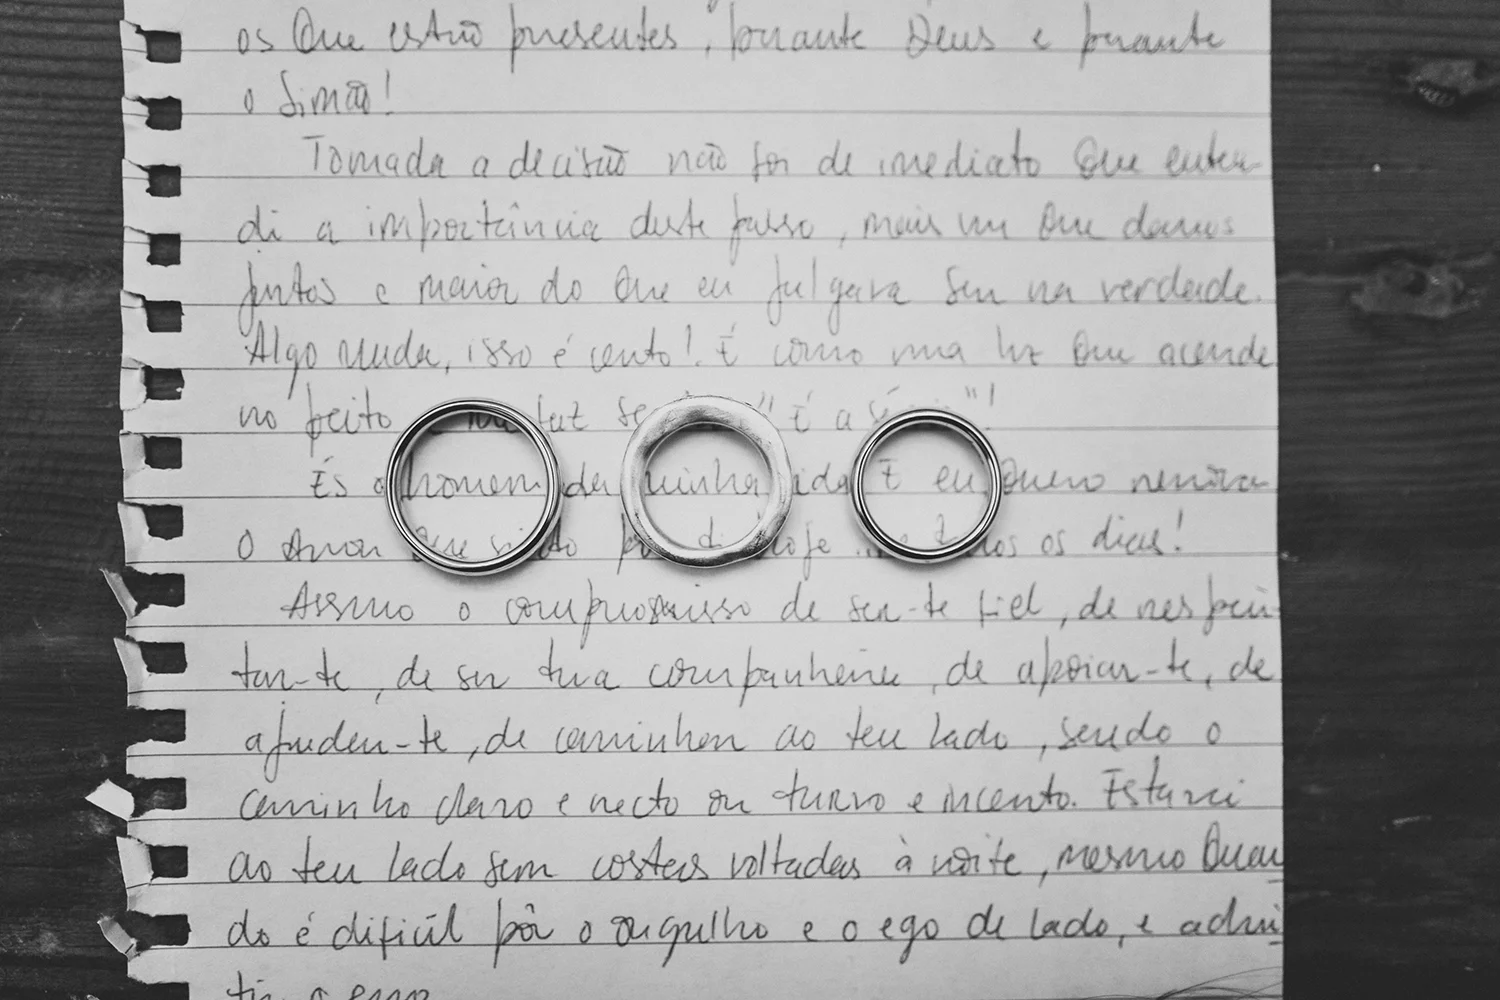 os que estão presentes, perante Deus e perante
o Simão!
Tomada a decisão não foi de imediato que enten-
di a importância deste passo, mais um que damos
juntos e maior do que eu julgava ser na verdade.
Algo muda, isso é certo! É como uma luz que acende
no peito e me faz "É a sério"!
És o homem da minha vida E eu quero renovar
o Amor que sinto por ti hoje todos os dias!
Assumo o compromisso de ser-te fiel, de respei-
tar-te, de ser tua companheira, de apoiar-te, de
ajudar-te, de caminhar ao teu lado, sendo o
caminho claro e recto ou turvo e incerto. Estarei
ao teu lado sem costas voltadas à noite, mesmo quan
do é difícil pôr o orgulho e o ego de lado, e admi
tir o erro